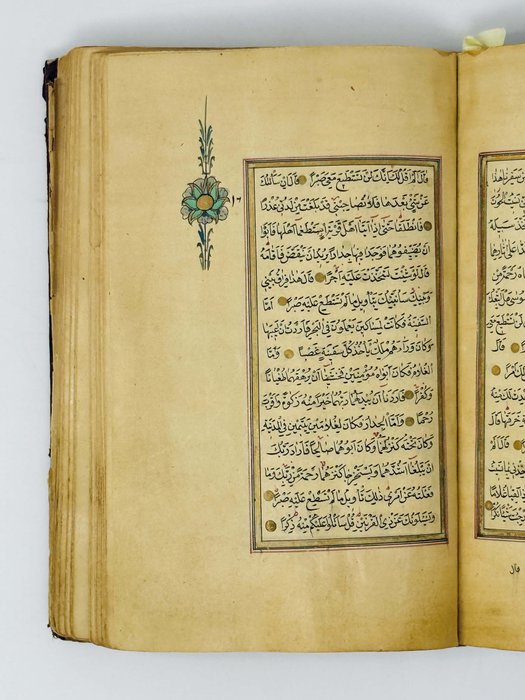 قَالَ اَلَمْ اَقُلْ لَكَ اِنَّكَ لَنْ تَسْتَطِيعَ مَعِيَ صَبْرًا قَالَ اِنْ سَاَلْتُكَ
عَنْ شَيْءٍ بَعْدَهَا فَلَا تُصَاحِبْنِي قَدْ بَلَغْتَ مِنْ لَدُنِّي عُذْرًا
فَانْطَلَقَا حَتّٰى اِذَا اَتَيَا اَهْلَ قَرْيَةٍ اسْتَطْعَمَا اَهْلَهَا فَاَبَوْا
اَنْ يُضَيِّفُوهُمَا فَوَجَدَا فِيهَا جِدَارًا يُرِيدُ اَنْ يَنْقَضَّ فَاَقَامَهُ
قَالَ لَوْ شِئْتَ لَتَّخَذْتَ عَلَيْهِ اَجْرًا قَالَ هٰذَا فِرَاقُ بَيْنِي
وَبَيْنِكَ سَاُنَبِّئُكَ بِتَاْوِيلِ مَا لَمْ تَسْتَطِعْ عَلَيْهِ صَبْرًا اَمَّا
السَّفِينَةُ فَكَانَتْ لِمَسَاكِينَ يَعْمَلُونَ فِي الْبَحْرِ فَاَرَدْتُ اَنْ اَعِيبَهَا
وَكَانَ وَرَاءَهُمْ مَلِكٌ يَاْخُذُ كُلَّ سَفِينَةٍ غَصْبًا وَاَمَّا
الْغُلَامُ فَكَانَ اَبَوَاهُ مُؤْمِنَيْنِ فَخَشِينَا اَنْ يُرْهِقَهُمَا طُغْيَانًا
وَكُفْرًا فَاَرَدْنَا اَنْ يُبْدِلَهُمَا رَبُّهُمَا خَيْرًا مِنْهُ زَكٰوةً وَاَقْرَبَ
رُحْمًا وَاَمَّا الْجِدَارُ فَكَانَ لِغُلَامَيْنِ يَتِيمَيْنِ فِي الْمَدِينَةِ
وَكَانَ تَحْتَهُ كَنْزٌ لَهُمَا وَكَانَ اَبُوهُمَا صَالِحًا فَاَرَادَ رَبُّكَ
اَنْ يَبْلُغَا اَشُدَّهُمَا وَيَسْتَخْرِجَا كَنْزَهُمَا رَحْمَةً مِنْ رَبِّكَ وَمَا
فَعَلْتُهُ عَنْ اَمْرِي ذٰلِكَ تَاْوِيلُ مَا لَمْ تَسْطِعْ عَلَيْهِ صَبْرًا
وَيَسْـَٔلُونَكَ عَنْ ذِي الْقَرْنَيْنِ قُلْ سَاَتْلُوا عَلَيْكُمْ مِنْهُ ذِكْرًا
١٦
قال